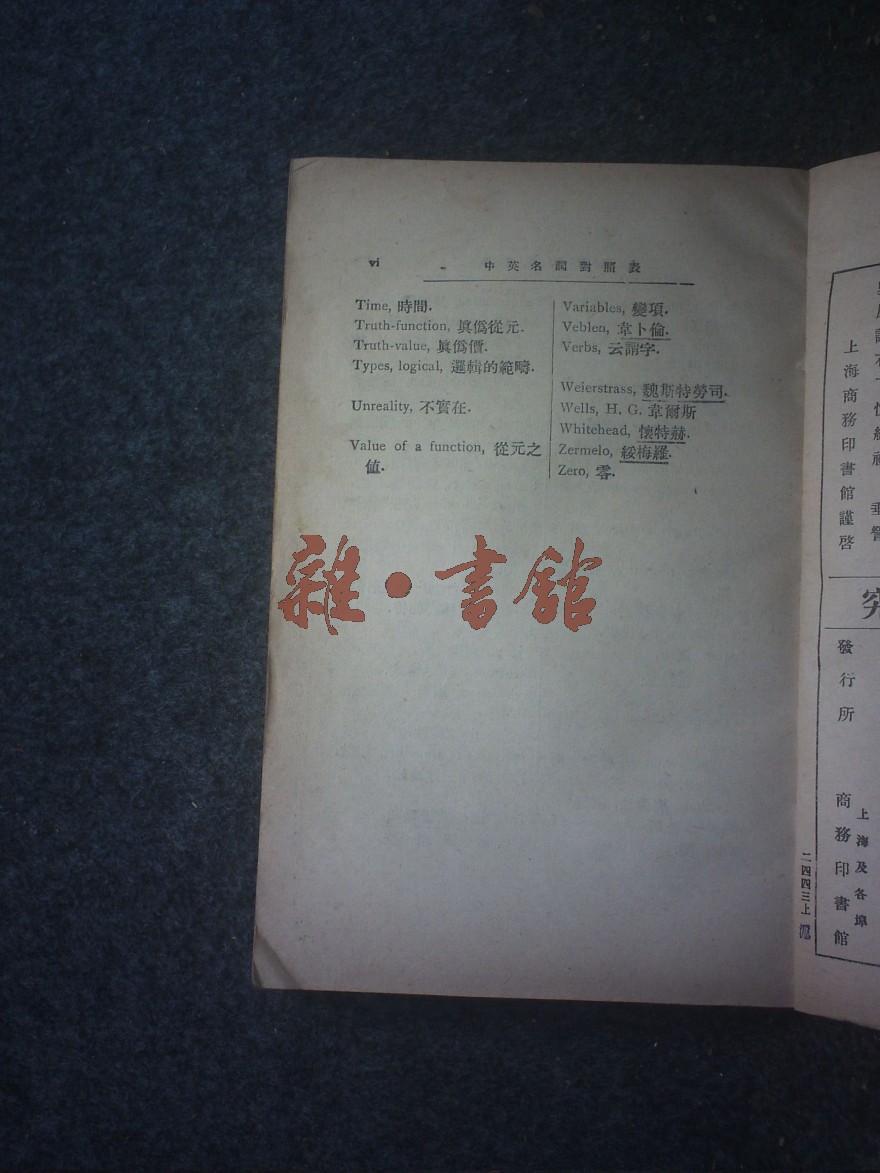 vi
中英名詞對照表
Time, 時間.
Truth-function, 眞僞從元.
Truth-value, 眞僞價.
Types, logical, 邏輯的範疇.
Unreality, 不實在.
Value of a function, 從元之
值.
Variables, 變項.
Veblen, 韋卜倫.
Verbs, 云謂字.
Weierstrass, 魏斯特勞司.
Wells, H. G. 韋爾斯
Whitehead, 懷特赫.
Zermelo, 綏梅羅.
Zero, 零.
雜•書舘
上海商務印書館謹啓
發行所
上海及各埠
商務印書館
二四四三上